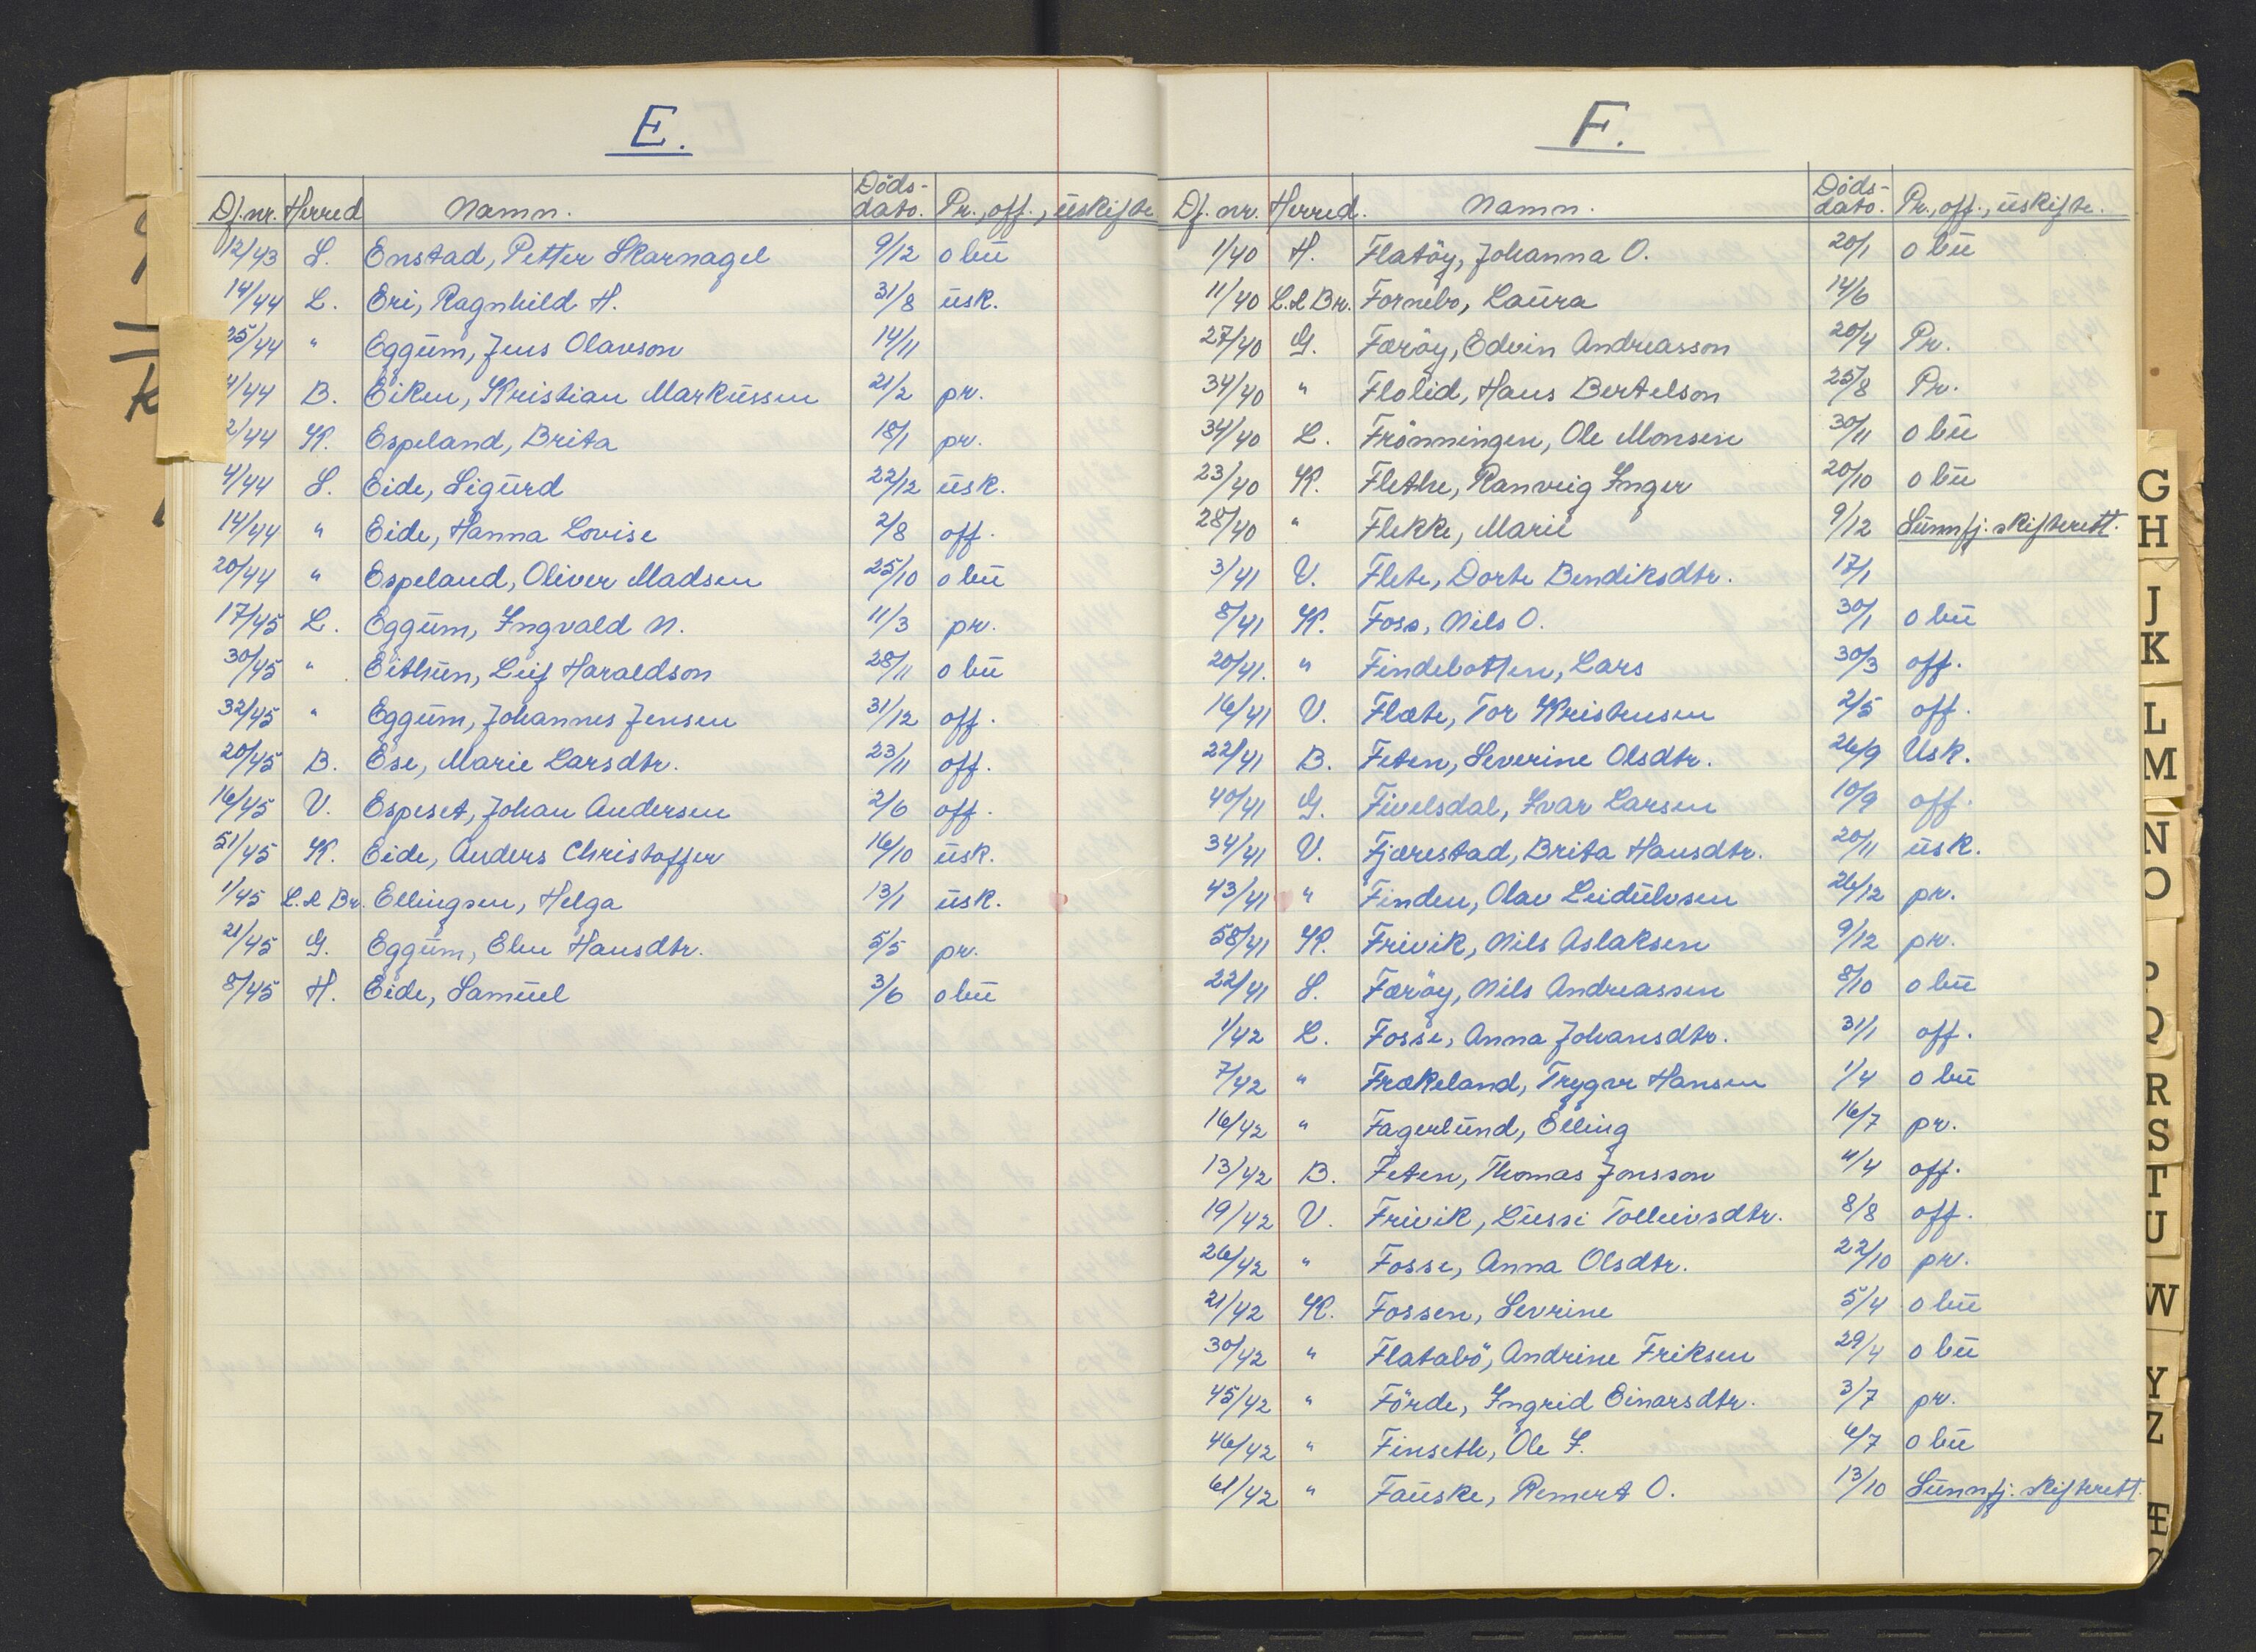 E.
Dj.nr. Herred Namn. Döds-dato. Pr., off., uskifte
12/43 S. Enstad, Petter Skarnagel 9/12 o bu
14/44 L. Eri, Ragnhild H. 31/8 usk.
25/44 " Eggum, Jens Olavson 14/11
4/44 B. Eiken, Kristian Markussen 21/2 pr.
2/44 K. Espeland, Brita 18/1 pr.
4/44 S. Eide, Sigurd 22/12 usk.
14/44 " Eide, Hanna Lovise 2/8 off.
20/44 " Espeland, Oliver Madsen 25/10 o bu
17/45 L. Eggum, Ingvald N. 11/3 pr.
30/45 " Eithun, Leif Haraldson 28/11 o bu
32/45 " Eggum, Johannes Jensen 31/12 off.
20/45 B. Ese, Marie Larsdtr. 23/11 off.
16/45 V. Espeset, Johan Andersen 2/6 off.
51/45 K. Eide, Anders Christoffer 16/10 usk.
1/45 L.d Br. Ellingsen, Helga 13/1 usk.
21/45 G. Eggum, Elen Hansdtr. 5/5 pr.
8/45 H. Eide, Samuel 3/6 o bu
F.
Dj. nr. Herred. Namn. Döds-dato. Pr., off., uskifte.
1/40 H. Flatöy, Johanna O. 20/1 o bu
11/40 L.d Br. Fornebo, Laura 14/6
27/40 G. Færöy, Edvin Andreasson 20/4 Pr.
34/40 " Flolid, Hans Bertelson 25/8 Pr.
34/40 L. Frönningen, Ole Monsen 30/11 o bu
23/40 K. Flethe, Ranveig Inger 20/10 o bu
28/40 " Flekke, Marie 9/12 Sunnfj. skifterett.
3/41 V. Flete, Dorte Bendiksdtr. 17/1
8/41 K. Foss, Nils O. 30/1 o bu
20/41. " Findebotten, Lars 30/3 off.
16/41 V. Flæte, Tor Kristensen 2/5 off.
22/41 B. Feten, Severine Olsdtr. 26/9 Usk.
40/41 G. Fivelsdal, Ivar Larsen 10/9 off.
34/41 V. Fjærestad, Brita Hansdtr. 20/11 usk.
43/41 " Finden, Olav Leidulvsen 26/12 pr.
58/41 K. Frivik, Nils Aslaksen 9/12 pr.
22/41 S. Færöy, Nils Andreassen 8/10 o bu
1/42 L. Fosse, Anna Johansdtr. 31/1 off.
7/42 " Frækeland, Trygve Hansen 1/4 o bu
16/42 " Fagerlund, Elling 16/7 pr.
13/42 B. Feten, Thomas Jonsson 4/4 off.
19/42 V. Frivik, Lussi Tolleivsdtr. 8/8 off.
26/42 " Fosse, Anna Olsdtr. 22/10 pr.
21/42 K. Fossen, Sevrine 5/4 o bu
30/42 " Flatabö, Andrine Friksen 29/4 o bu
45/42 " Förde, Ingrid Einarsdtr. 3/7 pr.
46/42 " Finseth, Ole J. 6/7 o bu
61/42 " Fauske, Remert O. 13/10 Sunnfj. skifterett.
G
H
J
K
L
M
N
O
P
Q
R
S
T
U
W
Y
Z
Æ
Ø